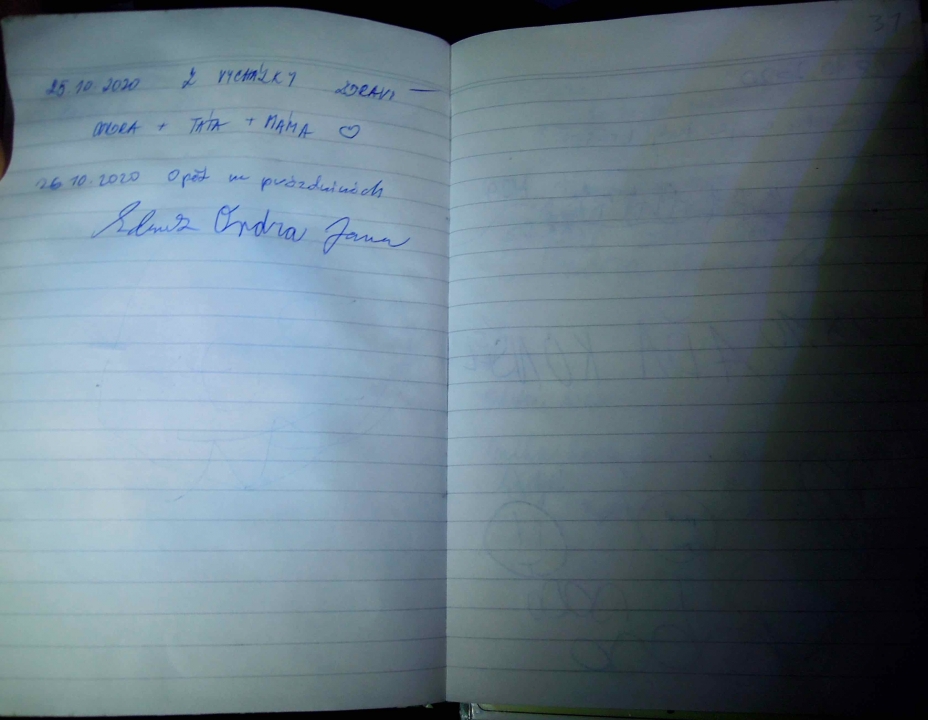 25.10.2020 Z VYCHÁZKY ZDRAVÍ —
+ TÁTA + MÁMA ♡
26.10.2020 Opět na prázdninách
Ondra Jana
31